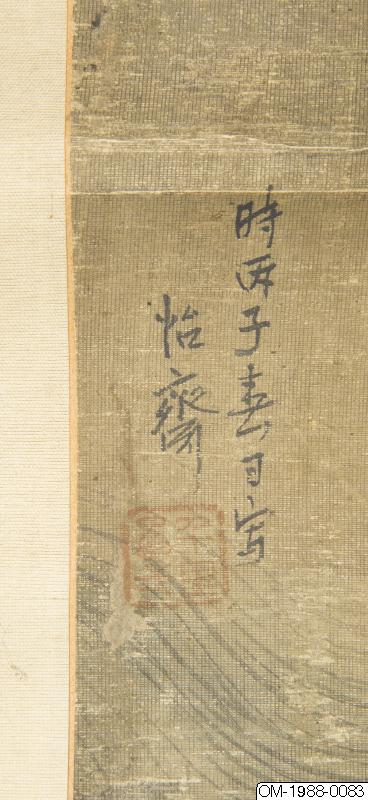 時丙子春日写
怡齋
OM-1988-0083